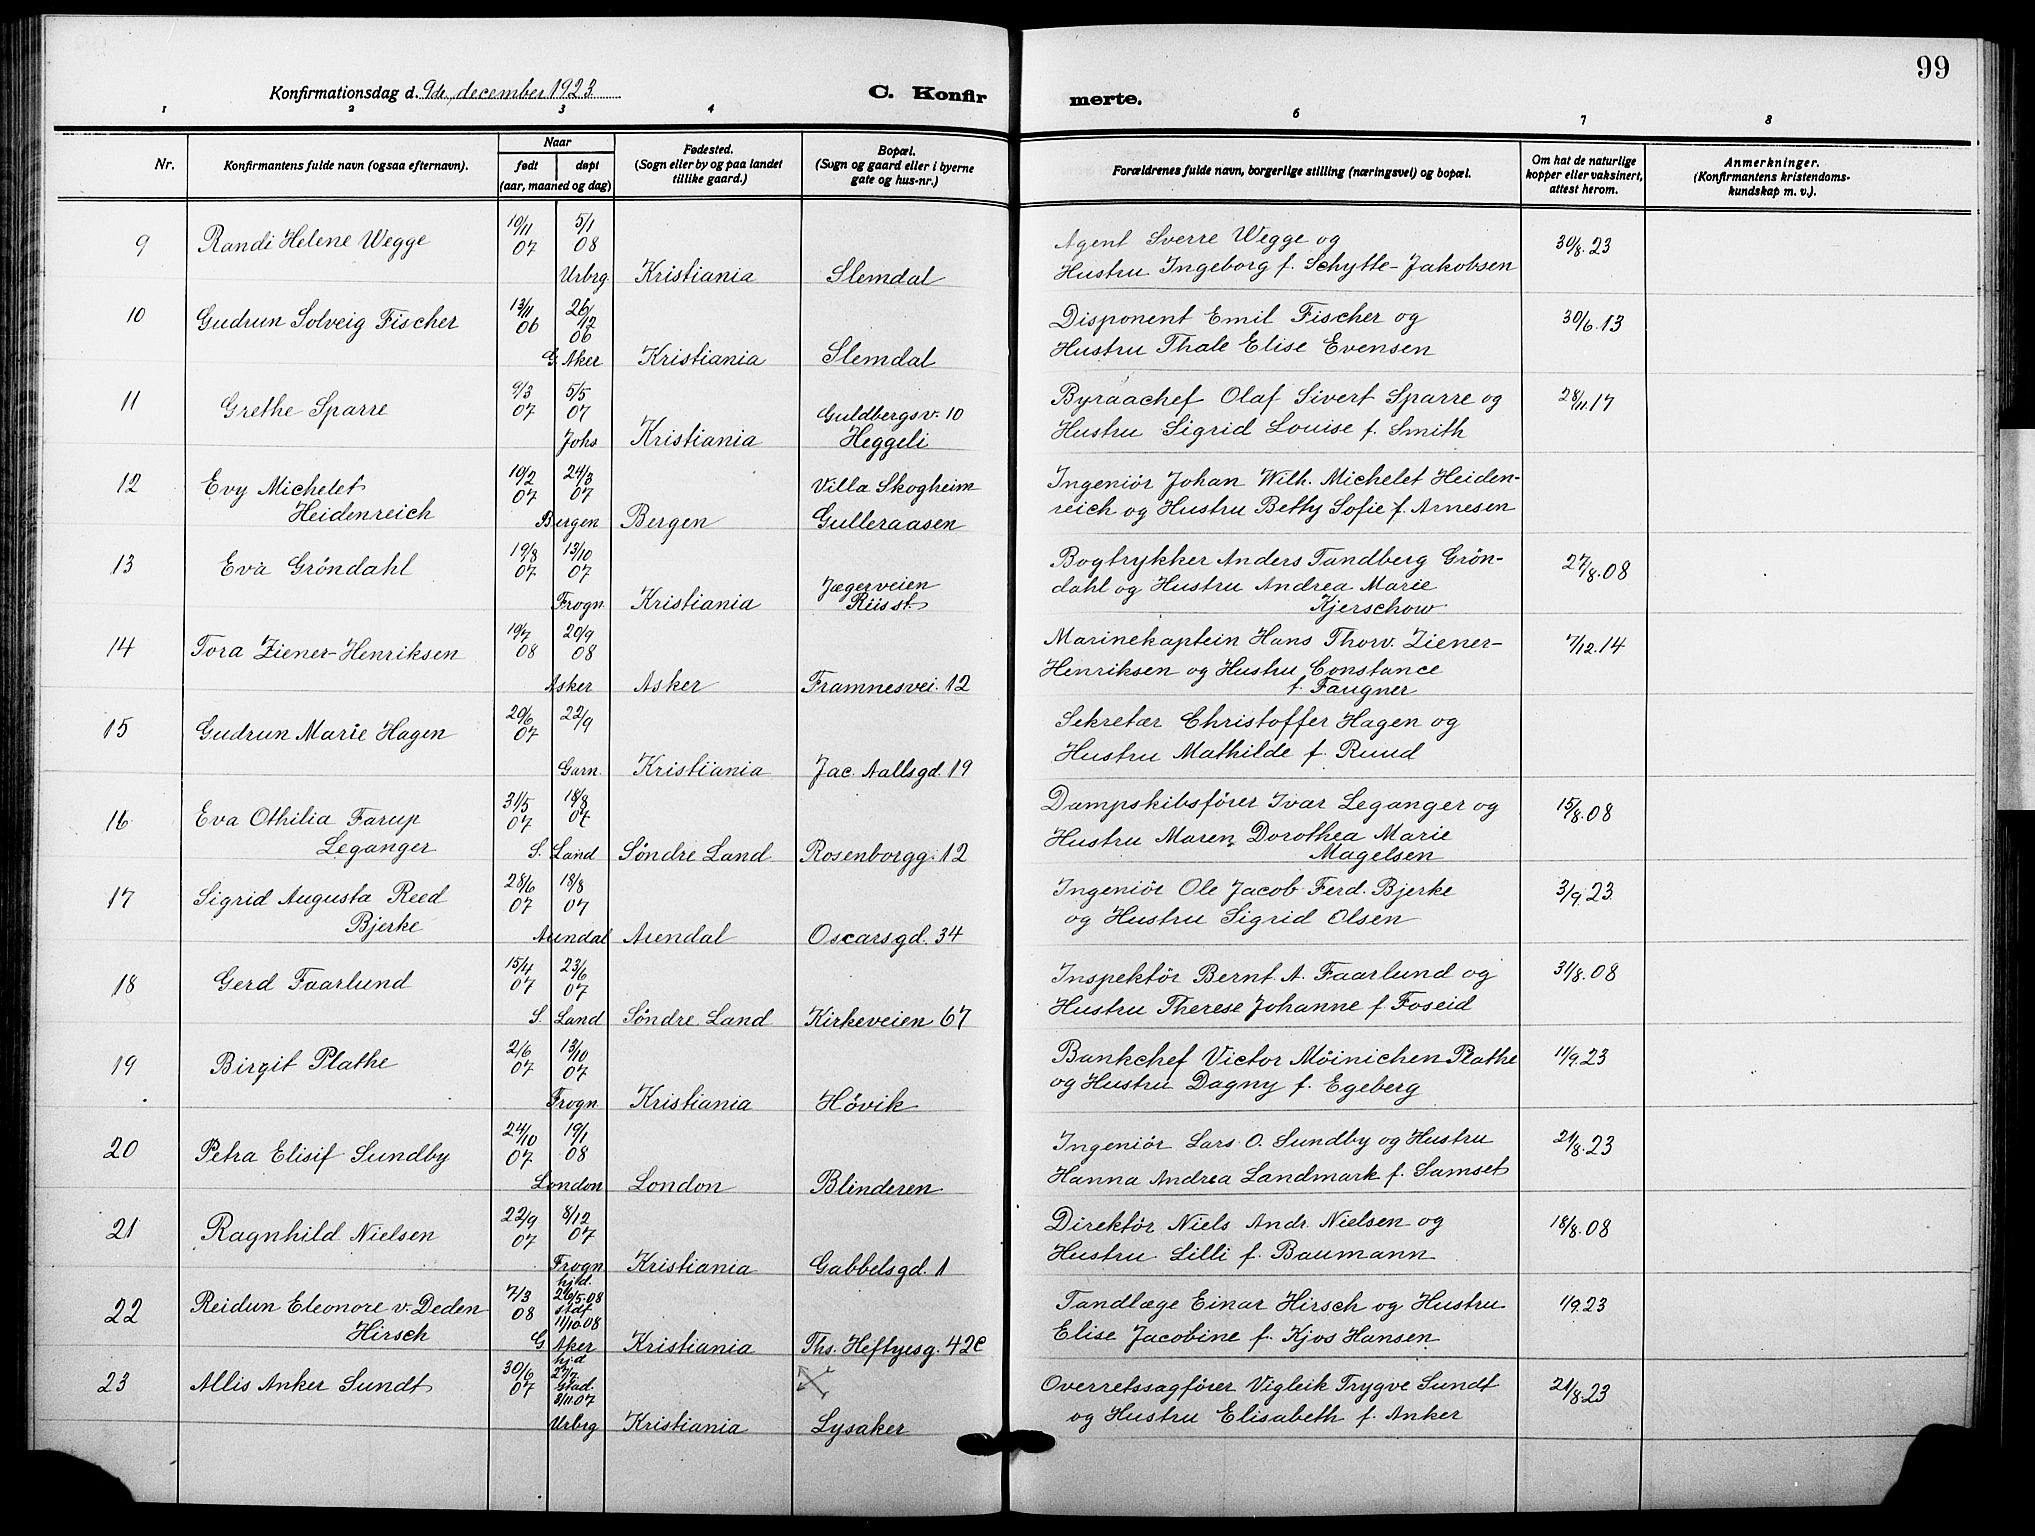 99
Konfirmationsdag d. 9de december 1923
C. Konfir merte.
1 2 3 4 6 7 8
Nr.
Konfirmantens fulde navn (ogsaa efternavn).
Naar
født døpt
(aar, maaned og dag)
Fødested.
(Sogn eller by og paa landet
tillike gaard.)
Bopæl.
(Sogn og gaard eller i byerne
gate og hus-nr.)
Forældrenes fulde navn, borgerlige stilling (næringsvei) og bopæl.
Om hat de naturlige
kopper eller vaksinert,
attest herom.
Anmerkninger.
(Konfirmantens kristendoms-
kundskap m. v.).
9 Randi Helene Wegge 10/11 07 5/1 08 Urbrg. Kristiania Slemdal
Agent Sverre Wegge og 30/8. 23
Hustru Ingeborg f. Schytte-Jakobsen
10 Gudrun Solveig Fischer 13/11 06 26/12 06 G. Aker Kristiania Slemdal
Disponent Emil Fischer og 30/6. 13
Hustru Thale Elise Evensen
11 Grethe Sparre 9/3 07 5/5 07 Johs Kristiania Guldbergsv. 10
Heggeli
Byraachef Olaf Sivert Sparre og 28/11. 17
Hustru Sigrid Louise f. Smith
12 Evy Michelet
Heidenreich 10/2 07 24/3 07 Bergen Bergen Villa Skogheim
Gulleraasen
Ingeniör Johan Wilh. Michelet Heiden-
reich og Hustru Betty Sofie f. Arnesen
13 Eva Gröndahl 19/8 07 13/10 07 Frogn. Kristiania Jægerveien
Riis st.
Bogtrykker Anders Tandberg Grön- 27/8. 08
dahl og Hustru Andrea Marie
Kjerschow
14 Tora Ziener-Henriksen 19/7 08 20/9 08 Asker Asker Framnesvei. 12
Marinekaptein Hans Thorv. Ziener- 7/12. 14
Henriksen og Hustru Constance
f. Faugner
15 Gudrun Marie Hagen 20/6 07 22/9 Garn. Kristiania Jac. Aallsgd. 19
Sekretær Christoffer Hagen og
Hustru Mathilde f. Ruud
16 Eva Othilia Farup
Leganger 31/5 07 18/8 07 S. Land Söndre Land Rosenborgg. 12
Dampskibsförer Ivar Leganger og 15/8. 08
Hustru Maren Dorothea Marie
Magelsen
17 Sigrid Augusta Reed
Bjerke 28/6 07 18/8 07 Arendal Arendal Oscarsgd. 34
Ingeniör Ole Jacob Ferd. Bjerke 3/9. 23.
og Hustru Sigrid Olsen
18 Gerd Faarlund 15/4 07 23/6 07 S. Land Söndre Land Kirkeveien 67
Inspektör Bernt A. Faarlund og 31/8. 08
Hustru Therese Johanne f. Foseid
19 Birgit Plathe 2/6 07 13/10 07 Frogn Kristiania Hövik
Bankchef Victor Möinichen Plathe 11/9. 23
og Hustru Dagny f. Egeberg
20 Petra Elisif Sundby 24/10 07 19/1 08 London London Blinderen
Ingeniör Lars O. Sundby og Hustru 21/8. 23
Hanna Andrea Landmark f. Samset
21 Ragnhild Nielsen 22/9 07 8/12 07 Frogn Kristiania Gabbelsgd. 1
Direktör Niels Andr. Nielsen og 18/8. 08
Hustru Lilli f. Baumann
22 Reidun Eleonore v. Deden
Hirsch 7/3 08 hjd. 26/5. 08 stdf 11/10. 08 G. Aker Kristiania Ths. Heftyesg. 42c
Tandlæge Einar Hirsch og Hustru 1/9. 23
Elise Jacobine f. Kjos Hansen
23 Allis Anker Sundt 30/6 07 hjd 27/7. stad. 3/11. 07 Urbrg Kristiania Lysaker
Overretssagförer Vigleik Trygve Sundt 21/8. 23
og Hustru Elisabeth f. Anker